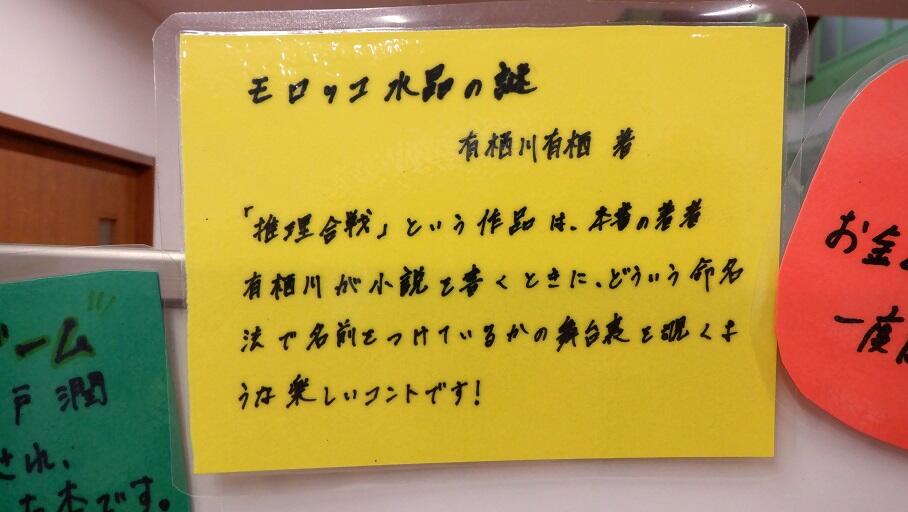 モロッコ水晶の謎
有栖川有栖 著
「推理合戦」という作品は、本書の著者
有栖川が小説を書くときに、どういう命名
法で名前をつけているかの舞台裏を覗くよ
うな楽しいコントです!
ーム”
戸潤
され、
本です。
お金
一度